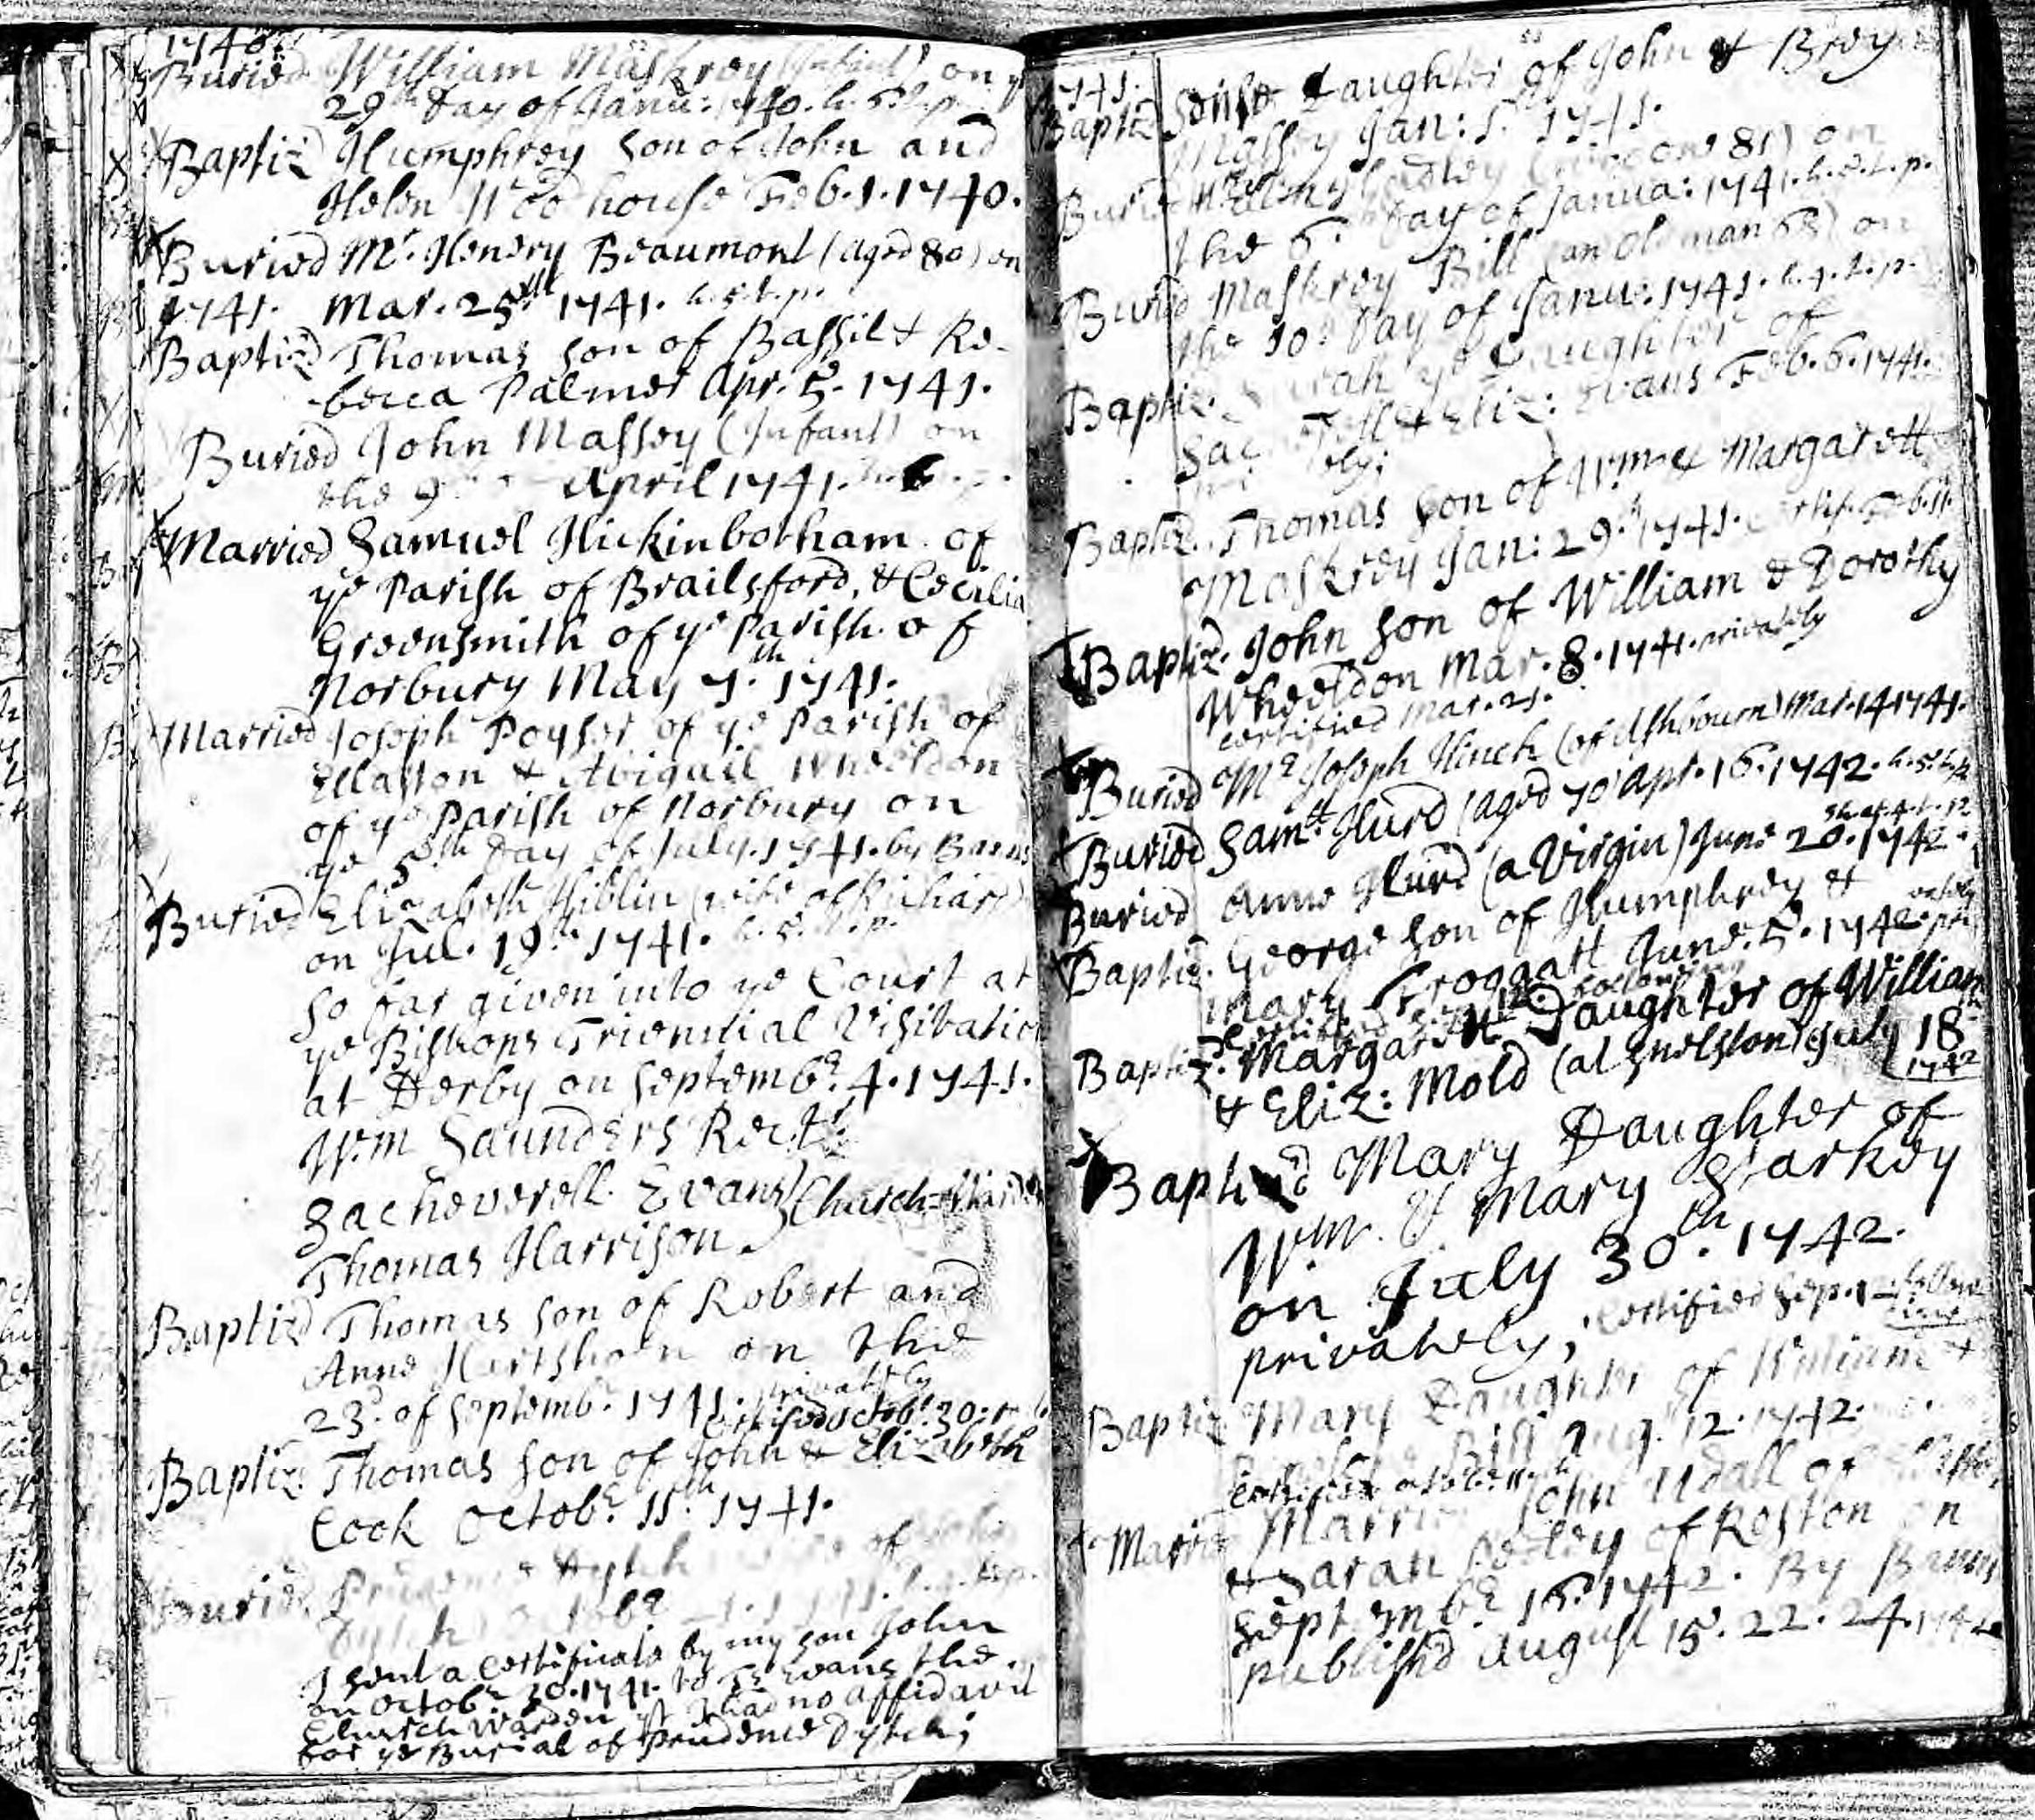 1740
Buried William Maskrey (Infant) on ye
29th Day of Janu: 1740. h. 5. t. p.
Baptiz'd Humphrey Son of John and
Helen Woodhouse Feb. 1. 1740.
Buried Mr. Henery Beaumont (aged 80) on
1741. Mar. 25th 1741. h. 5. t. p.
Baptiz'd Thomas Son of Bassil & Re-
becca Palmer Apr. 5. 1741.
Buried John Massey (Infant) on
the 9 April 1741.
Married Samuel Hickinbotham of
ye Parish of Brailsford, & Cecilia
Greensmith of ye Parish of
Norbury May 7th 1741.
Married Joseph Poyser of ye Parish of
Ellaston & Abigail Wheeldon
of ye Parish of Norbury on
ye 5th Day of July. 1741. by Banns
Buried Elizabeth Hiblin (wife of Richard)
on Jul. 19th 1741. h. 5. t. p.
So far given into ye Court at
ye Bishops Triennial Visitation
at Derby on Septembr. 4. 1741.
Wm Saunders Rectr.
Sacheverell Evans } Church-Warden
Thomas Harrison
Baptiz'd Thomas Son of Robert and
Anne Hertshorn on the
23d. of Septembr. 1741. privately
certified Octobr. 30.
Baptiz. Thomas Son of John & Elizabeth
Cook Octobr. 11th 1741.
Buried Prudence Dytch of
Dytch) Octobr
I sent a Certificate by my son John
on Octobr 30. 1741. to Sr. Evans the
Church Warden yt I had no affidavit
for ye Burial of Prudence Dytch;
1741.
Baptiz Daughter of John & Brey
Massey Jan: 1. 1741.
Buried (widow 81) on
the 6. Day of Janua: 1741. h. 5. t. p.
Buried Maskrey Bill (an old man 68) on
the 10. Day of Janu: 1741. h. 9. t. p.
Baptiz. Sarah ye Daughter of
Sac & Eliz: Evans Feb. 6. 1741.
Baptiz. Thomas Son of Wm & Margarett
Maskrey Jan: 29th 1741. certif. Feb. 11.
Baptiz. John Son of William & Dorothy
Wheeldon Mar. 8. 1741. privately
certified Mar. 21.
Buried Mr Joseph Hinch (of Ashbourn) Mar. 14 1741.
Buried Samll. Hurd (aged 70) Apr. 16. 1742. h. 5. t. p.
Buried Anne Hurd (a Virgin) June 20. 1742.
Baptiz. George Son of Humphrey &
Mary Froggatt June. 5. 1742 privately
certified following
Baptiz. Margarett Daughter of William
& Eliz: Mold (at Snelston) July 18
1742
Baptiz'd Mary Daughter of
Wm. & Mary Starkey
on July 30th. 1742.
privately; certified Sep. 12 following
Baptiz Mary Daughter of William &
Bill Aug. 12. 1742.
certified
Married Married John Udall of
& Sarah of Roston on
Septembr 16. 1742. By Banns
publish'd August 15. 22. 24. 1742